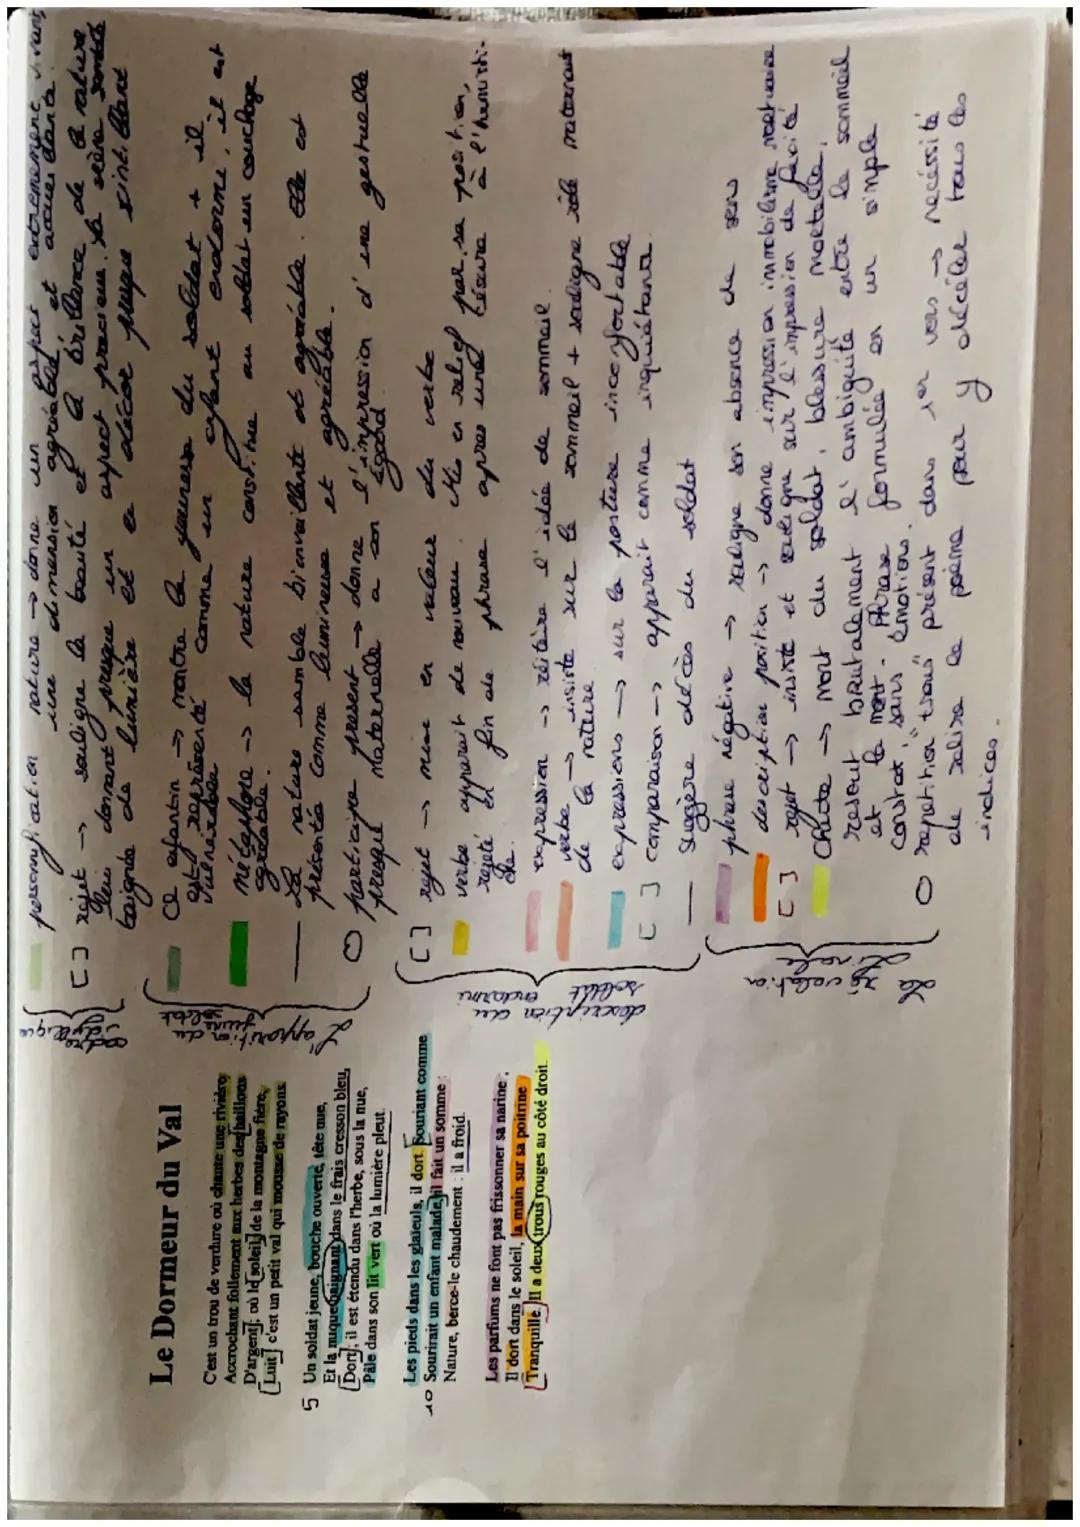 Le Dormeur du Val
C'est un trou de verdure où chante une rivière,
Accrochant follement aux herbes des haillons
D'argent ; où le soleil, de la montagne fière,
Luit : c'est un petit val qui mousse de rayons.
5 Un soldat jeune, bouche ouverte, tête nue,
Et la nuque baignant dans le frais cresson bleu,
Dort ; il est étendu dans l'herbe, sous la nue,
Pâle dans son lit vert où la lumière pleut.
Les pieds dans les glaïeuls, il dort. Souriant comme
10 Sourirait un enfant malade, il fait un somme :
Nature, berce-le chaudement : il a froid.
Les parfums ne font pas frissonner sa narine ;
Il dort dans le soleil, la main sur sa poitrine
Tranquille. Il a deux trous rouges au côté droit.
cadre idyllique
personnification nature → donne un aspect extrêmement vivant,
une dimension agréable et accueillante.
[] rejet → souligne la beauté et la brillance de la nature
donnant presque un aspect précieux. La scène semble
baignée de lumière et le décor presque
L'apparition du jeune soldat
CL enfantin → montre la jeunesse du soldat + il
est représenté comme un enfant endormi, il est
vulnérable
métaphore → la nature constitue au soldat un couchage
agréable.
— La nature semble bienveillante et agréable. Elle est
présentée comme lumineuse et agréable.
O participe présent → donne l'impression d'une gestuelle
presque maternelle à son égard
description du soldat endormi
[] rejet → mise en valeur du verbe
verbe apparait de nouveau. Mis en relief par sa position,
rejeté en fin de phrase après une césure à l'hémisti-
che.
expression → réitère l'idée de sommeil.
verbe → insiste sur le sommeil + souligne rôle maternant
de la nature
expressions → sur la posture inconfortable
[] comparaison → apparait comme inquiétant
— suggère décès du soldat
La révélation finale
phrase négative → souligne son absence de sens
description position → donne impression immobilisme mortuaire
[] rejet → insiste et souligne sur l'impression de
Chute → mort du soldat, blessure mortelle,
résout brutalement l'ambiguïté entre le sommeil
et la mort. Phrase formulée en un simple
constat, sans émotions.
O répétition "trous" présent dans 1er vers → nécessité
de relire le poème pour y déceler tous les
indices.